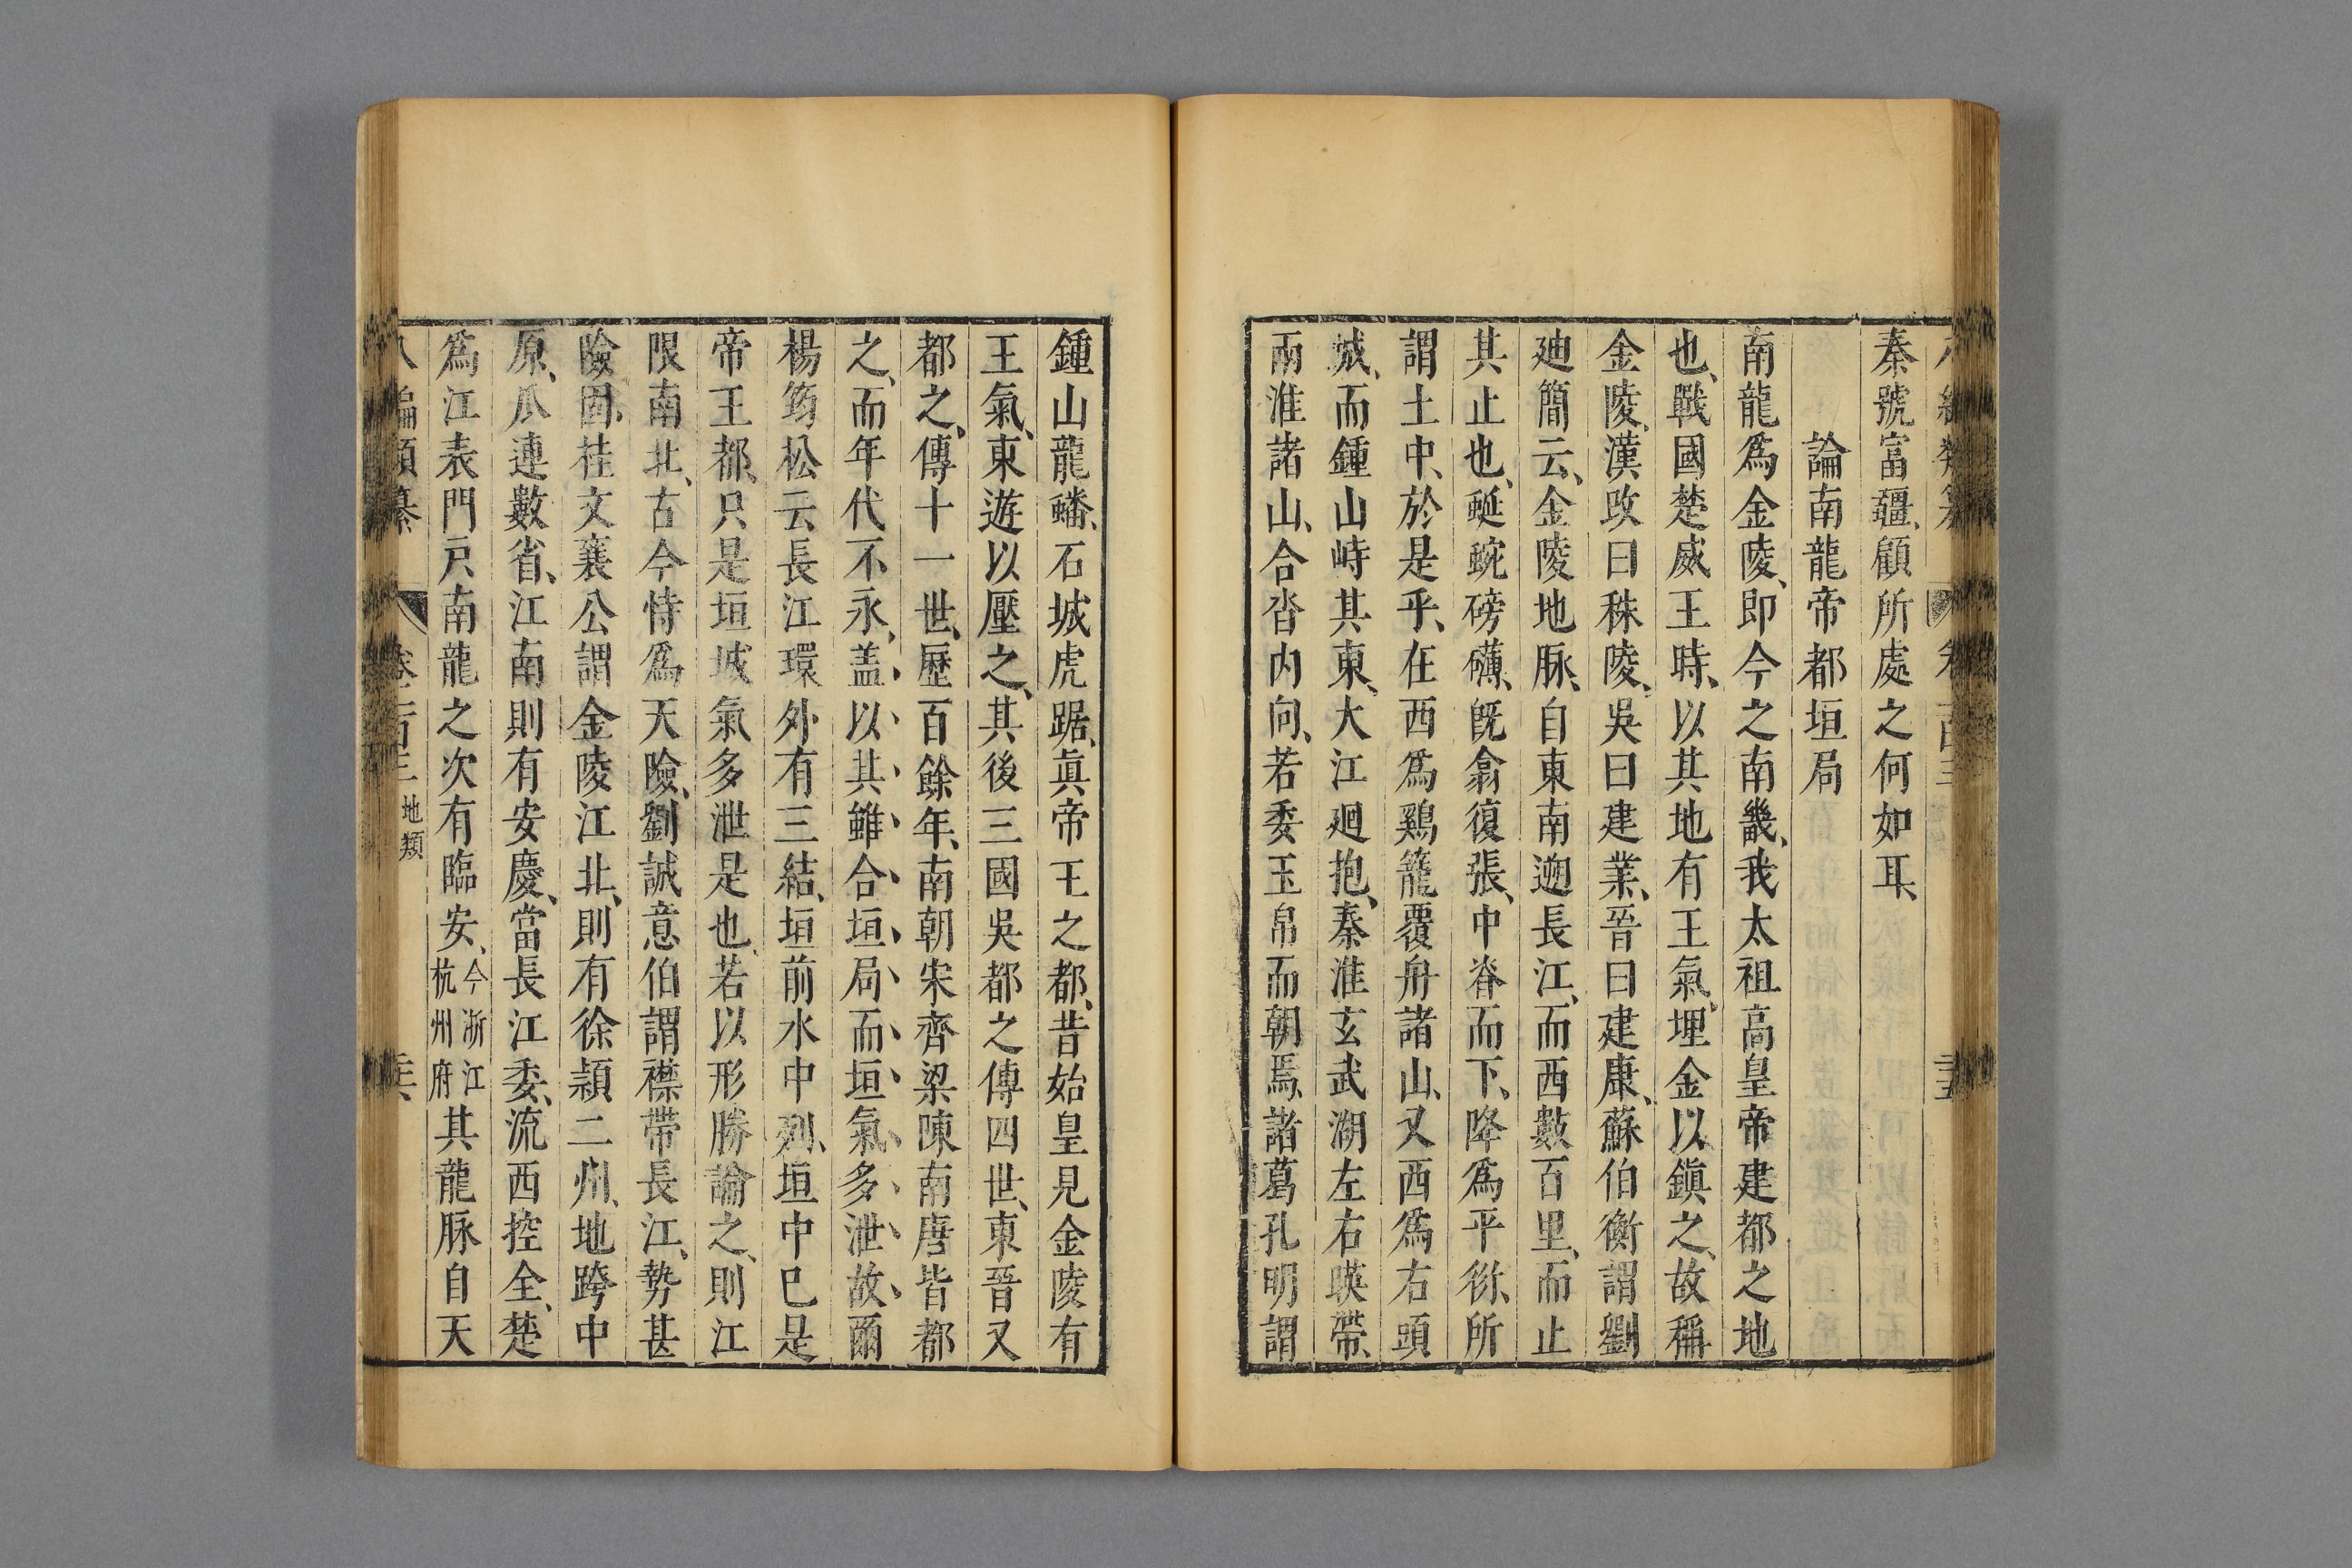 秦號富疆、顧所處之何如耳、
論南龍帝都垣局
南龍爲金陵、即今之南畿、我太祖高皇帝建都之地
也、戰國楚威王時、以其地有王氣、埋金以鎭之、故稱
金陵、漢攺曰秣陵、吳曰建業、晉曰建康、蘇伯衡謂劉
廸簡云、金陵地脉、自東南遡長江、而西數百里、而止
其止也、蜒蜿磅礴、旣翕復張、中脊而下、降爲平衍、所
謂土中、於是乎、在西爲鷄籠覆舟諸山、又西爲石頭
城、而鍾山峙其東、大江廻抱、秦淮玄武湖左右暎帶、
兩淮諸山、合沓內向、若委玉帛而朝焉、諸葛孔明謂
鍾山龍蟠、石城虎踞、眞帝王之都、昔始皇見金陵有
王氣、東遊以壓之、其後三國吳都之傳四世、東晉又
都之、傳十一世、歷百餘年、南朝宋齊梁陳南唐皆都
之、而年代不永、盖以其雖合垣局而垣氣多泄故爾
楊筠松云長江環外有三結、垣前水中列、垣中已是
帝王都、只是垣城氣多泄是也、若以形勝論之、則江
限南北、古今恃爲天險、劉誠意伯謂襟帶長江、勢甚
險固、桂文襄公謂金陵江北、則有徐頴二州、地跨中
原、爪連數省、江南則有安慶、當長江委、流西控全楚、
爲江表門戶南龍之次有臨安、今浙江杭州府其龍脉自天
八編類纂 卷一百三 地類 三六